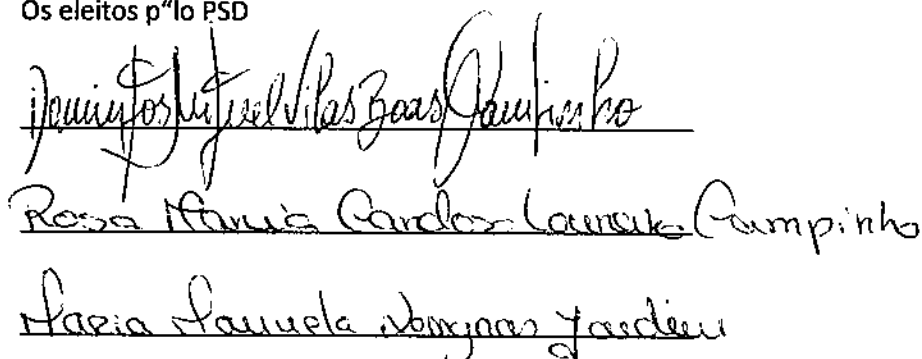 Os eleitos p"lo PSD
Domingos Miguel Vilas Boas Campinho
Rosa Maria Cardoso Loureiro Campinho
Maria Manuela Jardim